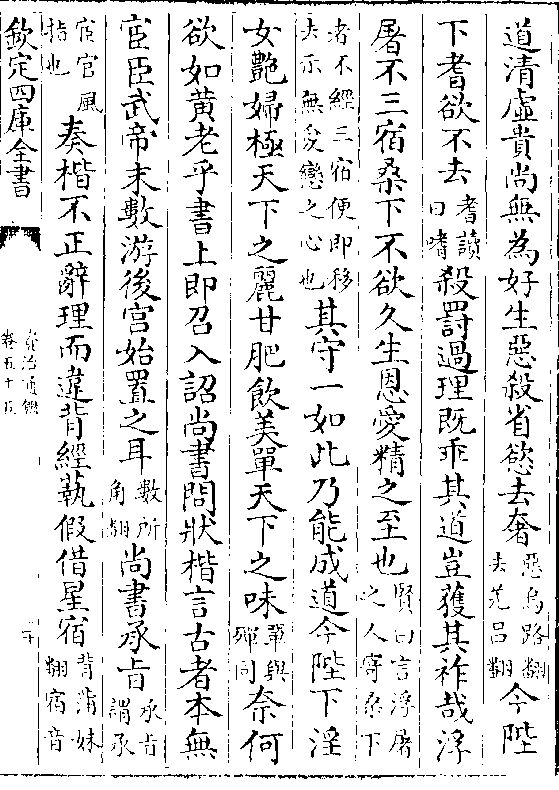 道清虛貴尚無為好生惡殺省慾去奢惡烏路翻去羌呂翻今陛
下耆欲不去耆讀曰嗜殺罰過理既乖其道豈獲其祚哉浮
屠不三宿桑下不欲久生恩愛精之至也賢曰言浮屠之人寄桑下
者不經三宿便即移去示無愛戀之心也其守一如此乃能成道今陛下淫
女艷婦極天下之麗甘肥飲美單天下之味單與殫同奈何
欲如黃老乎書上即召入詔尚書問狀楷言古者本無
宦臣武帝末數游後宮始置之耳數所角翻尚書承旨承旨謂承
宦官風指也奏楷不正辭理而違背經藝假借星宿背蒲妹翻宿音
欽定四庫全書
資治通鑑
卷五十五